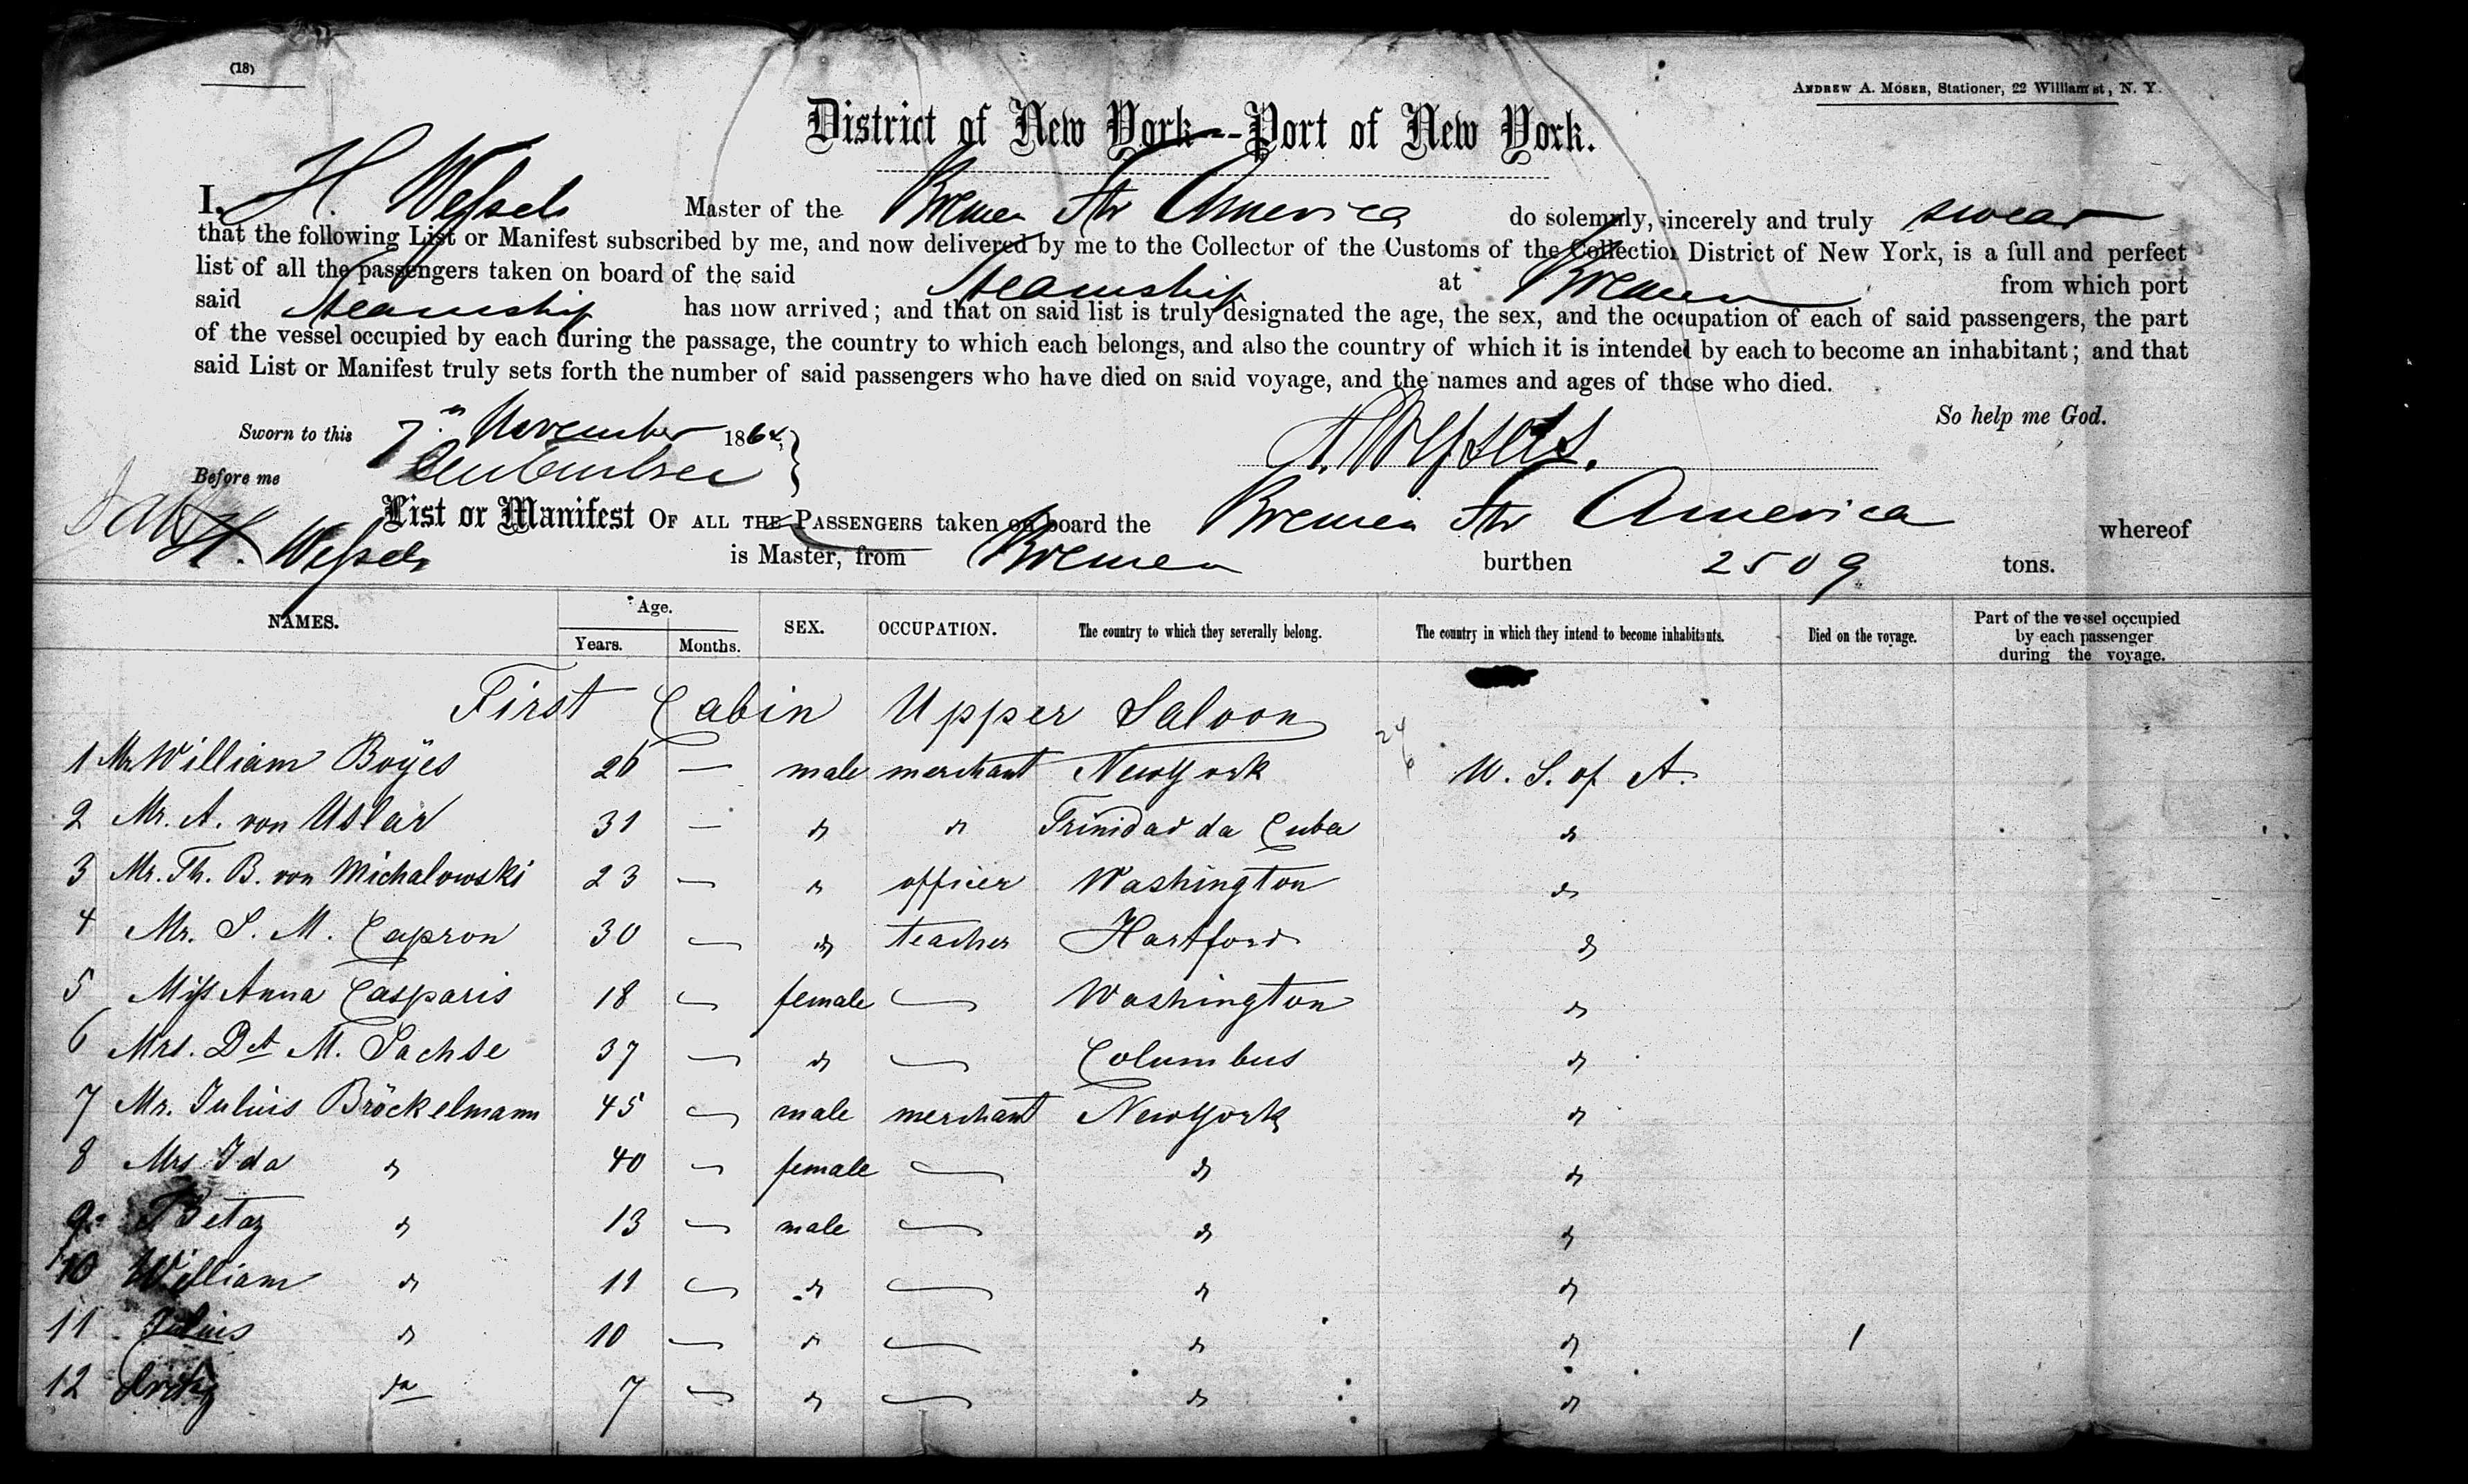 (18)
ANDREW A. MOSER, Stationer, 22 William st, N. Y.
District of New York--Port of New York.
I, H. Wessels Master of the Bremen Str America do solemnly, sincerely and truly swear
that the following List or Manifest subscribed by me, and now delivered by me to the Collector of the Customs of the Collection District of New York, is a full and perfect
list of all the passengers taken on board of the said Steamship at Bremen from which port
said Steamship has now arrived; and that on said list is truly designated the age, the sex, and the occupation of each of said passengers, the part
of the vessel occupied by each during the passage, the country to which each belongs, and also the country of which it is intended by each to become an inhabitant; and that
said List or Manifest truly sets forth the number of said passengers who have died on said voyage, and the names and ages of those who died.
So help me God.
Sworn to this 7th November 1864,
H. Wessels.
Before me
List or Manifest OF ALL THE PASSENGERS taken on board the Bremen Str America whereof
H. Wessels is Master, from Bremen burthen 2509 tons.
NAMES. Age. Years. Months. SEX. OCCUPATION. The country to which they severally belong. The country in which they intend to become inhabitants. Died on the voyage. Part of the vessel occupied by each passenger during the voyage.
First Cabin Upper Saloon
1 Mr William Boÿes 26 — male merchant New York U. S. of A.
2 Mr. A. von Uslar 31 — " " Trinidad da Cuba "
3 Mr. Th. B. von Michalowski 23 — " officer Washington "
4 Mr. S. M. Capron 30 — " teacher Hartford "
5 Miss Anna Casparis 18 — female — Washington "
6 Mrs. M. Sachse 37 — " — Columbus "
7 Mr. Julius Bröckelmann 45 — male merchant New York "
8 Mrs Ida " 40 — female — " "
9 " 13 — male — " "
10 William " 11 — " — " "
11 Julius " 10 — " — " " 1
12 " 7 — " — " "